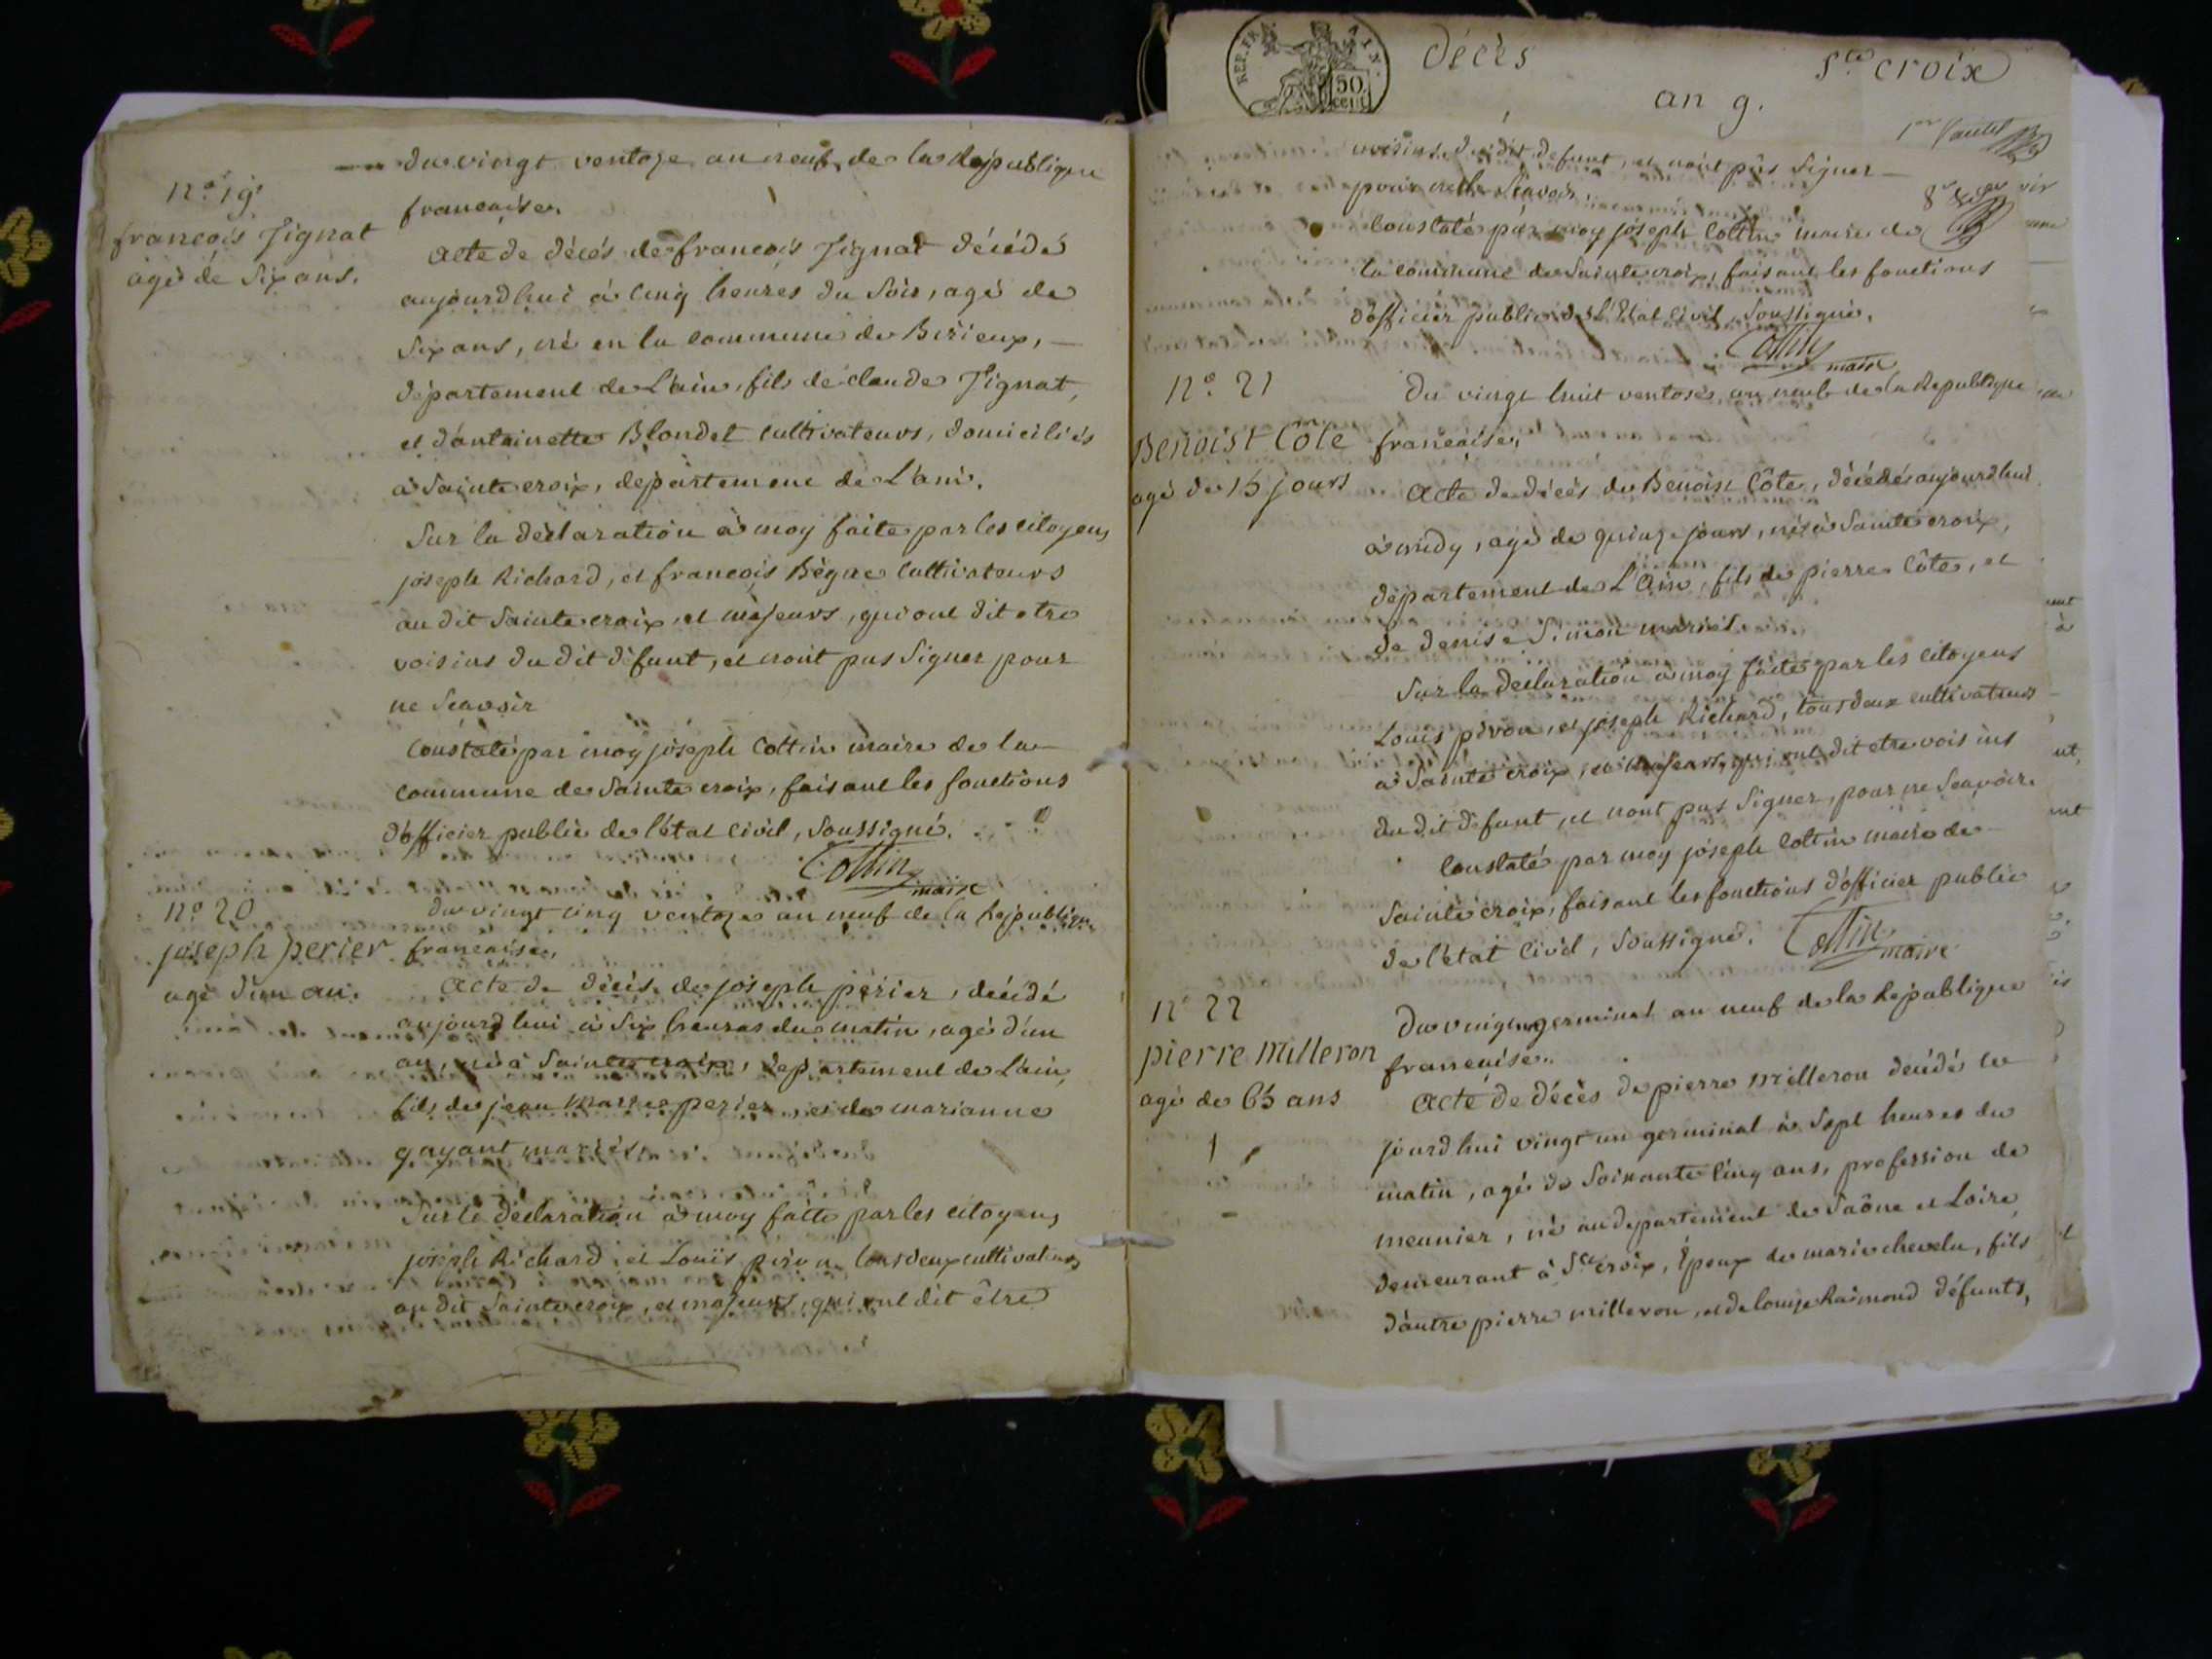 du vingt ventose an neuf de la Republique
n.º 19.
francaise.
francois Jignat
agé de Six ans.
acte de décés de francois Jignat décédé
aujourdhui à cinq heures du Soir, agé de
Six ans, né en la commune de Birieux,
département de L'ain, fils de claude Jignat,
et d'antoinette Blondet cultivateurs, domiciliés
à Sainte croix, departement de L'ain.
Sur la déclaration à moy faite par les citoyens
joseph Richard, et francois Bégue Cultivateurs
au dit Sainte croix, et majeurs, qui ont dit etre
voisins du dit défunt, et nont pas Signer pour
ne Scavoir
Constaté par moy joseph Cottin maire de la
commune de Sainte croix, faisant les fonctions
d'officier public de l'état civil, Soussigné.
Cottin
maire
n.º 20
du vingt cinq ventose an neuf de la Republique
joseph perier
francaise.
agé d'un an.
acte de décés de joseph périer, décédé
aujourdhui à Six heures du matin, agé d'un
an, né à Sainte croix, département de L'ain,
fils de jean Marie perier, et de marianne
gayant mariés,
Sur la déclaration à moy faite par les citoyens
joseph Richard, et Louis pivon tous deux cultivateurs
au dit Sainte croix, et majeurs, qui ont dit être
REP. FRA.
AIN.
50
cent
décès
S.te croix
an 9.
voisins du dit defunt, et nont pas Signer
pour ne le Scavoir,
Constaté par moy joseph Cottin maire de
la commune de Sainte croix, faisant les fonctions
d'officier public de l'Etat civil, Soussigné.
Cottin
maire
n.º 21
Du vingt huit ventose, an neuf de la Republique
Benoist Côte
francaise,
agé de 15 jours
acte de décés de Benoist Côte, décédé aujourdhui
à midy, agé de quinze jours, né à Sainte croix,
département de L'Ain, fils de pierre Côte, et
de denise Simon mariés.
Sur la declaration à moy faite par les citoyens
Louis pivon, et joseph Richard, tous deux cultivateurs
à Sainte croix, et majeurs, qui ont dit etre voisins
du dit défunt, et nont pas Signer, pour ne Scavoir.
Constaté par moy joseph Cottin maire de
Sainte croix, faisant les fonctions d'officier public
de l'état civil, Soussigné.
Cottin
maire
n.º 22
Du vingt un germinal an neuf de la Republique
pierre Milleron
francaise.
agé de 65 ans
acté de décés de pierre milleron décédé ce
jourdhui vingt un germinal à Sept heures du
matin, agé de Soixante cinq ans, profession de
meunier, né au departement de Saône et Loire,
demeurant à S.te croix, Epoux de marie chevelu, fils
d'autre pierre milleron, et de louise Raimond défunts,